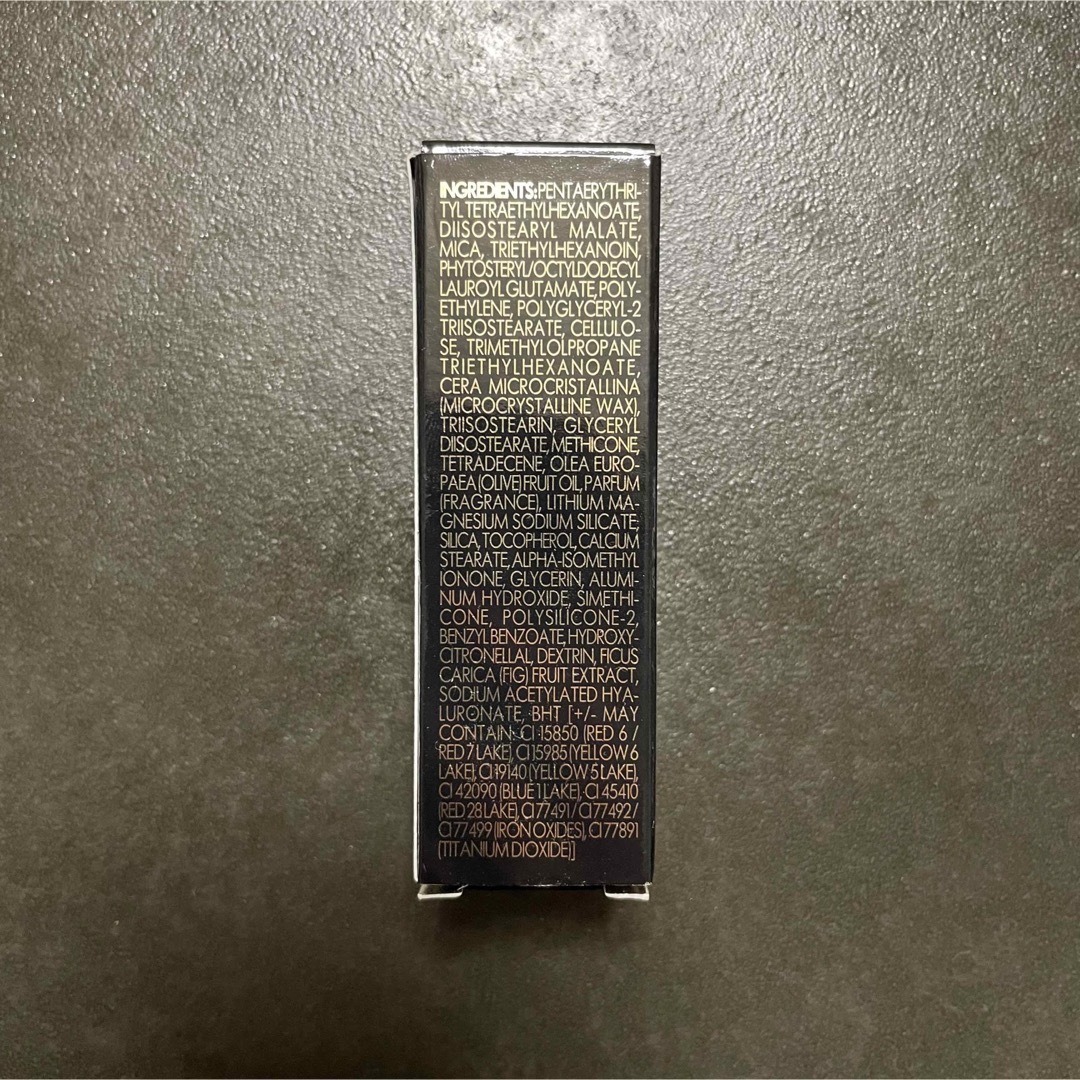 INGREDIENTS:PENTAERYTHRI-
TYL TETRAETHYLHEXANOATE,
DIISOSTEARYL MALATE,
MICA, TRIETHYLHEXANOIN,
PHYTOSTERYL/OCTYLDODECYL
LAUROYL GLUTAMATE, POLY-
ETHYLENE, POLYGLYCERYL-2
TRIISOSTEARATE, CELLULO-
SE, TRIMETHYLOLPROPANE
TRIETHYLHEXANOATE,
CERA MICROCRISTALLINA
(MICROCRYSTALLINE WAX),
TRIISOSTEARIN, GLYCERYL
DIISOSTEARATE, METHICONE,
TETRADECENE, OLEA EURO-
PAEA (OLIVE) FRUIT OIL, PARFUM
(FRAGRANCE), LITHIUM MA-
GNESIUM SODIUM SILICATE,
SILICA, TOCOPHEROL, CALCIUM
STEARATE, ALPHA-ISOMETHYL
IONONE, GLYCERIN, ALUMI-
NUM HYDROXIDE, SIMETHI-
CONE, POLYSILICONE-2,
BENZYL BENZOATE, HYDROXY-
CITRONELLAL, DEXTRIN, FICUS
CARICA (FIG) FRUIT EXTRACT,
SODIUM ACETYLATED HYA-
LURONATE, BHT [+/- MAY
CONTAIN: CI 15850 (RED 6 /
RED 7 LAKE), CI 15985 (YELLOW 6
LAKE), CI 19140 (YELLOW 5 LAKE),
CI 42090 (BLUE 1 LAKE), CI 45410
(RED 28 LAKE), CI 77491 / CI 77492 /
CI 77499 (IRON OXIDES), CI 77891
(TITANIUM DIOXIDE)]